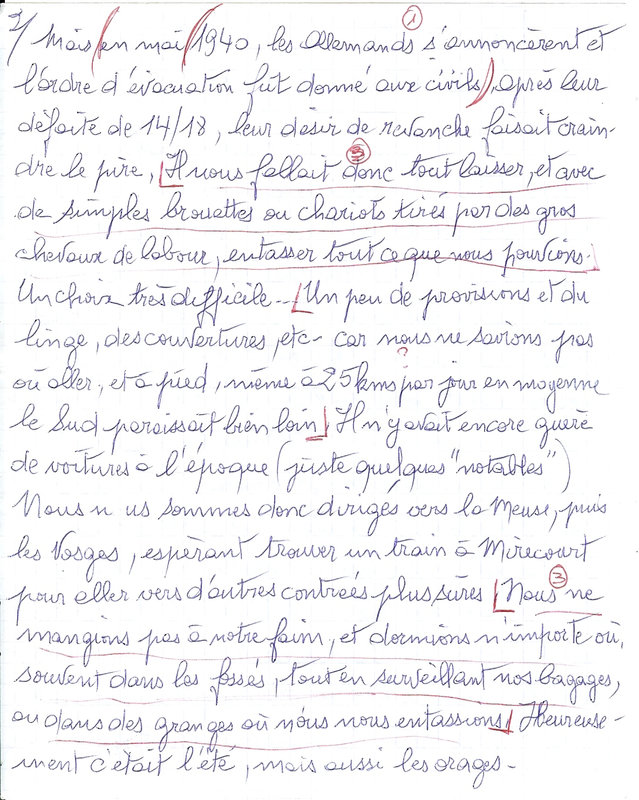 3/ Mais en mai 1940, les Allemands s'annoncèrent et
l'ordre d'évacuation fut donné aux civils, après leur
défaite de 14/18, leur désir de revanche faisait crain-
dre le pire, Il nous fallait donc tout laisser, et avec
de simples brouettes ou chariots tirés par des gros
chevaux de labour, entasser tout ce que nous pouvions.
Un choix très difficile -- Un peu de provisions et du
linge, des couvertures, etc- car nous ne savions pas
où aller, et à pied, même à 25 kms par jour en moyenne
le Sud paraissait bien loin. Il n'y avait encore guère
de voitures à l'époque (juste quelques "notables")
Nous n us sommes donc dirigés vers la Meuse, puis
les Vosges, espérant trouver un train à Mirecourt
pour aller vers d'autres contrées plus sûres Nous ne
mangions pas à notre faim, et dormions n'importe où,
souvent dans les fossés, tout en surveillant nos bagages,
ou dans des granges où nous nous entassions, Heureuse-
ment c'était l'été, mais aussi les orages-